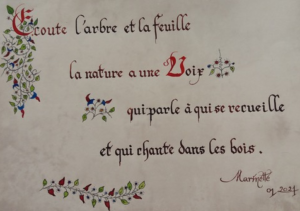 Ecoute l'arbre et la feuille
la nature a une Voix
qui parle à qui se recueille
et qui chante dans les bois.
Marinette